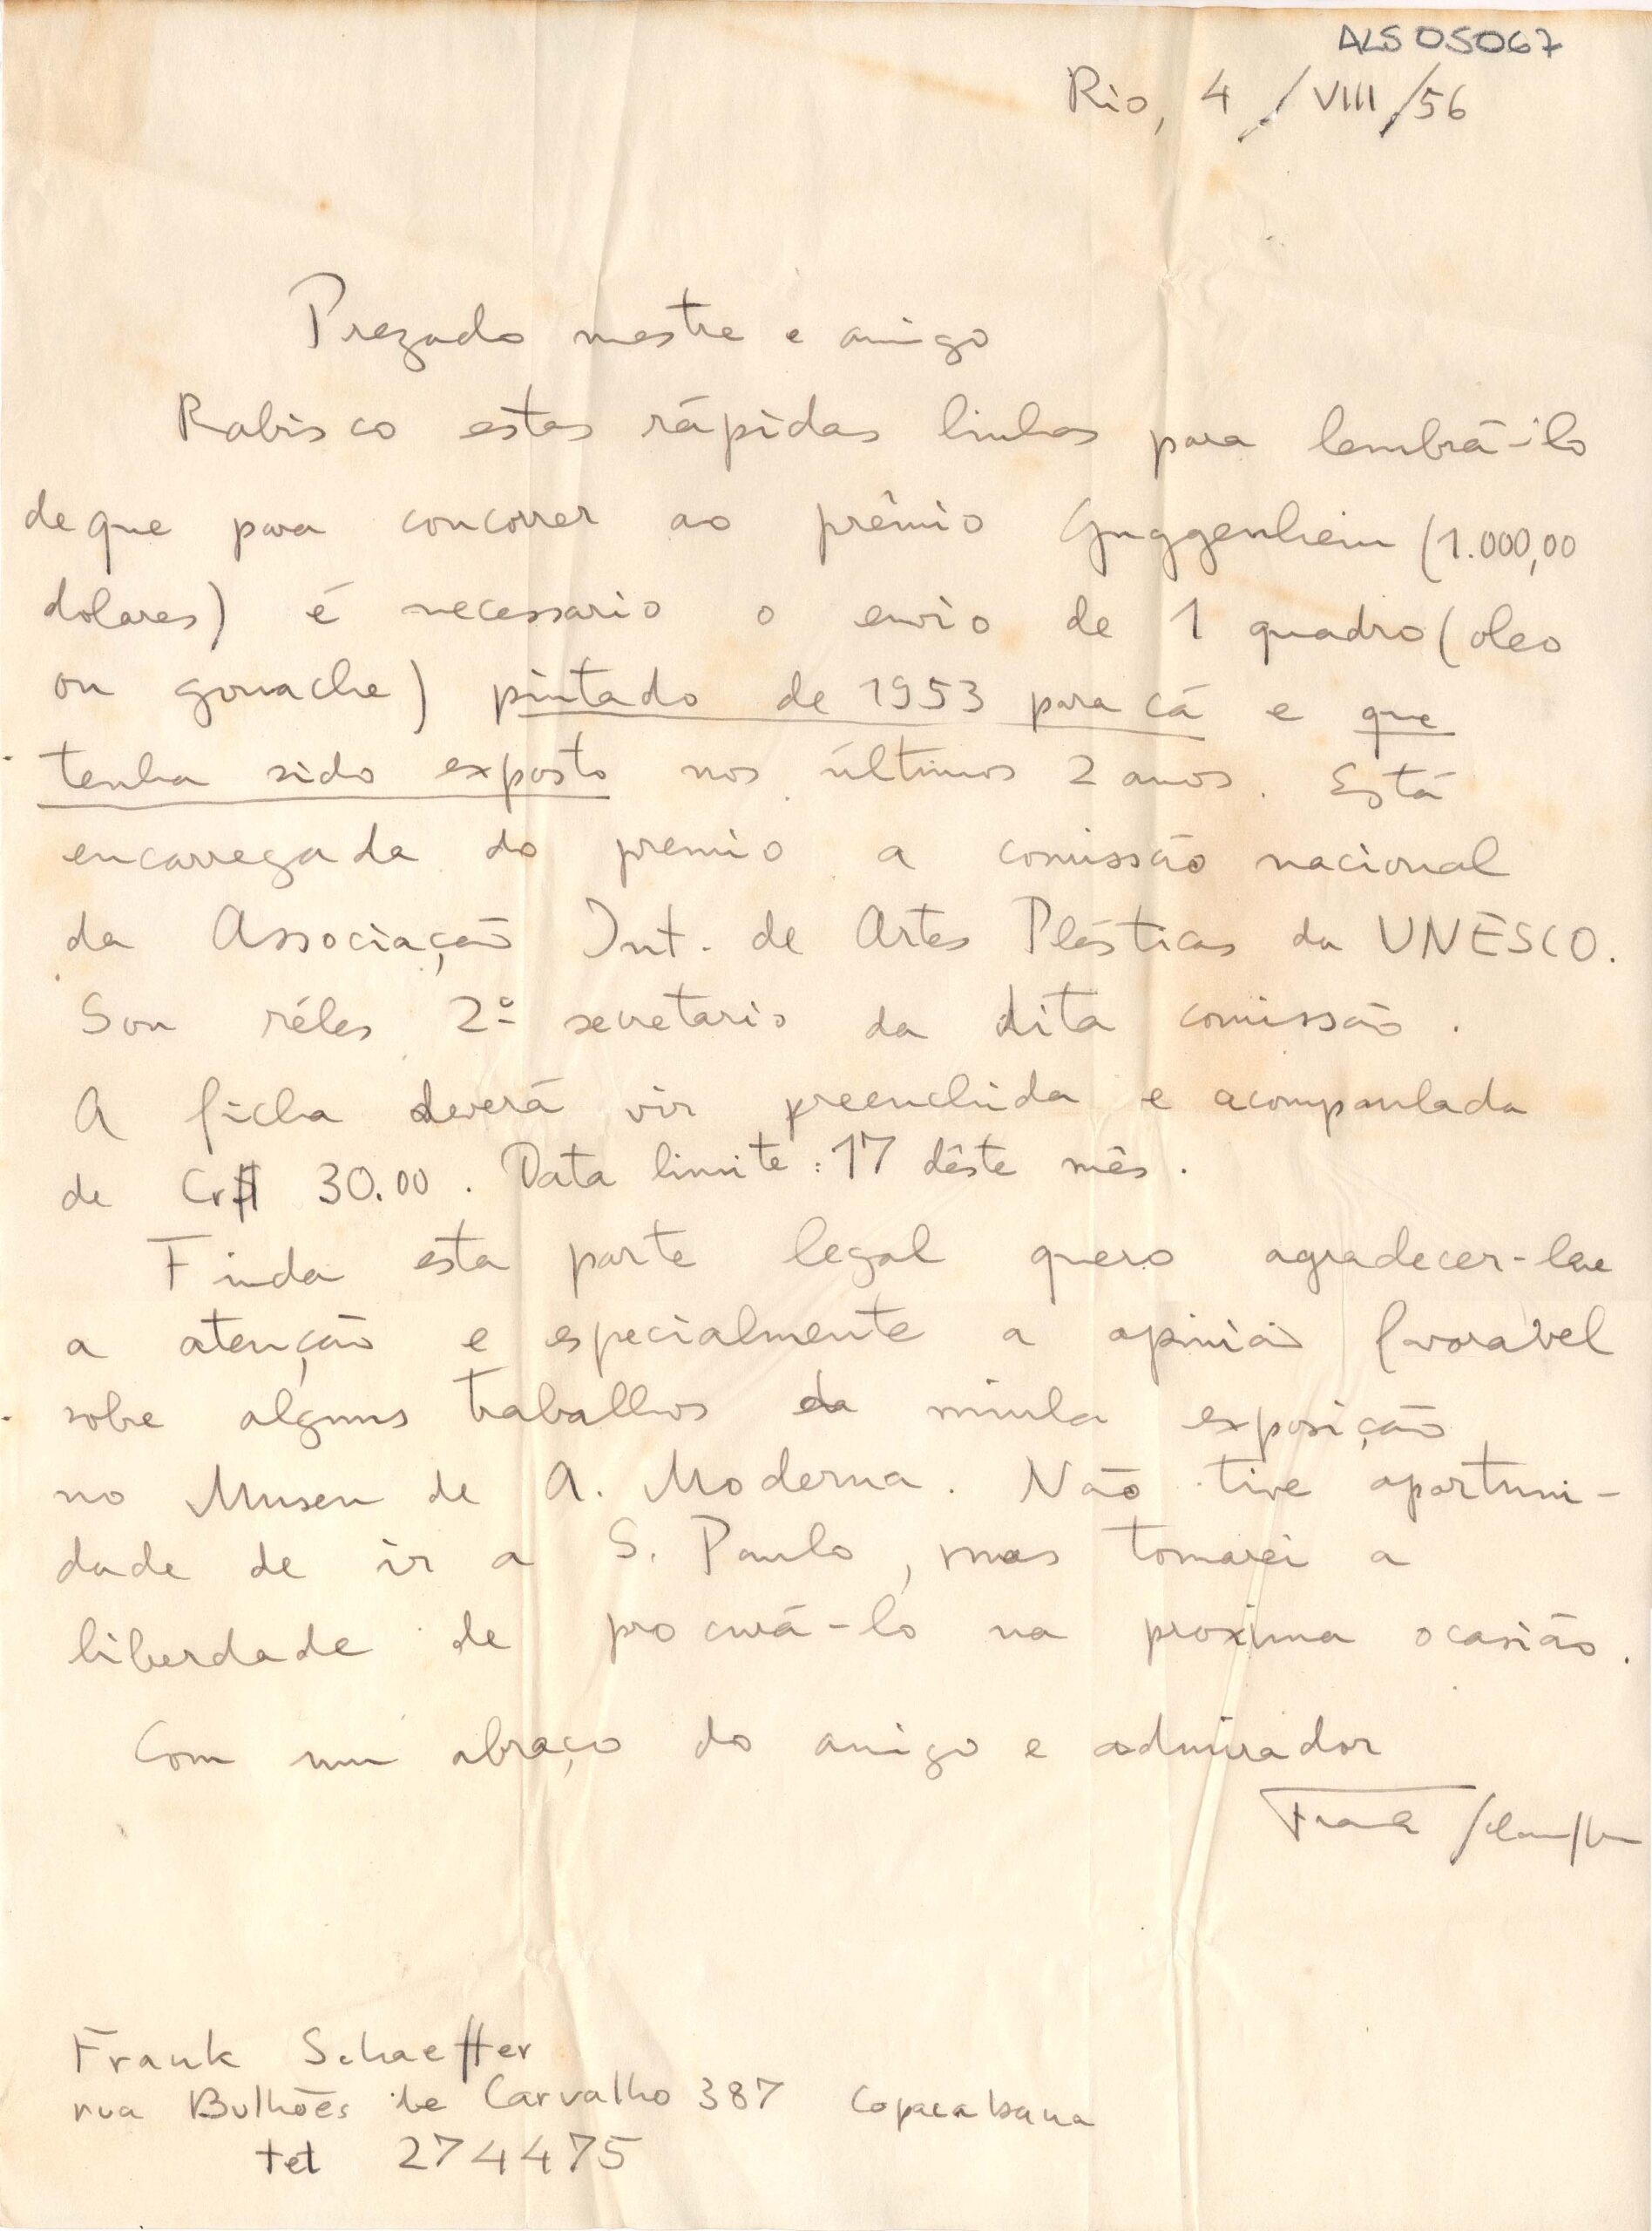 ALS05067
Rio, 4/VIII/56
Prezado mestre e amigo
Rabisco estas rápidas linhas para lembrá-lo
de que para concorrer ao prêmio Guggenheim (1.000,00
dolares) é necessario o envio de 1 quadro (oleo
ou gouache) pintado de 1953 para cá e que
tenha sido exposto nos últimos 2 anos. Está
encarregada do premio a comissão nacional
da Associação Int. de Artes Plásticas da UNESCO.
Sou réles 2º secretario da dita comissão.
A ficha deverá vir preenchida e acompanhada
de Cr$ 30.00. Data limite: 17 dêste mês.
Finda esta parte legal quero agradecer-lhe
a atenção e especialmente a opinião favoravel
sobre alguns trabalhos da minha exposição
no Museu de A. Moderna. Não tive oportuni-
dade de ir a S. Paulo, mas tomarei a
liberdade de procurá-lo na proxima ocasião.
Com um abraço do amigo e admirador
Frank Schaeffer
Frank Schaeffer
rua Bulhões de Carvalho 387 Copacabana
tel 274475